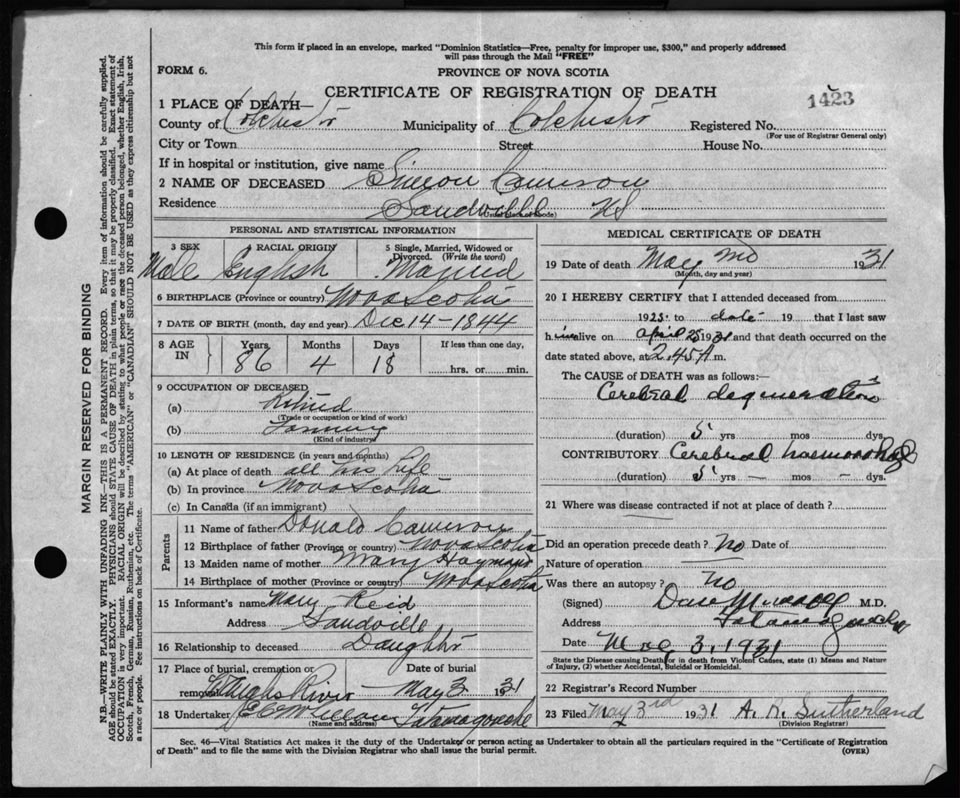 This form if placed in an envelope, marked "Dominion Statistics—Free, penalty for improper use, $300," and properly addressed
will pass through the Mail "FREE"
FORM 6.
PROVINCE OF NOVA SCOTIA
CERTIFICATE OF REGISTRATION OF DEATH
1423
1 PLACE OF DEATH—
County of Colchest'r Municipality of Colchest'r Registered No.
(For use of Registrar General only)
City or Town Street House No.
If in hospital or institution, give name
2 NAME OF DECEASED Simeon Cameron
Residence Sandville NS
(Usual place of abode)
PERSONAL AND STATISTICAL INFORMATION
3 SEX RACIAL ORIGIN 5 Single, Married, Widowed or
Divorced. (Write the word)
Male English Married
6 BIRTHPLACE (Province or country) Nova Scotia
7 DATE OF BIRTH (month, day and year) Dec 14-1844
8 AGE IN Years Months Days If less than one day,
86 4 18 hrs. or min.
9 OCCUPATION OF DECEASED
(a) Retired
(Trade or occupation or kind of work)
(b) Farming
(Kind of industry)
10 LENGTH OF RESIDENCE (in years and months)
(a) At place of death all his life
(b) In province Nova Scotia
(c) In Canada (if an immigrant)
Parents
11 Name of father Donald Cameron
12 Birthplace of father (Province or country) Nova Scotia
13 Maiden name of mother Mary
14 Birthplace of mother (Province or country) Nova Scotia
15 Informant's name Mary Reid
Address Sandville
16 Relationship to deceased Daught'r
17 Place of burial, cremation or Date of burial
removal River May 3 1931
18 Undertaker Tatamagouche
(Name and address)
MEDICAL CERTIFICATE OF DEATH
19 Date of death May 2nd 1931
(Month, day and year)
20 I HEREBY CERTIFY that I attended deceased from
1925 to date 19 that I last saw
h im alive on April 25 1931 and that death occurred on the
date stated above, at 2.45 A. m.
The CAUSE of DEATH was as follows:—
Cerebral degeneration
(duration) 5 yrs mos dys.
CONTRIBUTORY Cerebral haemorrhage
(duration) 5 yrs. — mos — dys.
21 Where was disease contracted if not at place of death?
Did an operation precede death? No Date of
Nature of operation
Was there an autopsy? No
(Signed) Dan Murray M.D.
Address Tatamagouche
Date May 3, 1931
State the Disease causing Death, or in death from Violent Causes, state (1) Means and Nature
of Injury, (2) whether Accidental, Suicidal or Homicidal.
22 Registrar's Record Number
23 Filed May 3rd 1931 A. R. Sutherland
(Division Registrar)
Sec. 46—Vital Statistics Act makes it the duty of the Undertaker or person acting as Undertaker to obtain all the particulars required in the "Certificate of Registration
of Death" and to file the same with the Division Registrar who shall issue the burial permit. (OVER)
MARGIN RESERVED FOR BINDING
N.B.—WRITE PLAINLY WITH UNFADING INK—THIS IS A PERMANENT RECORD. Every item of information should be carefully supplied.
AGE should be stated EXACTLY. PHYSICIANS should STATE CAUSE OF DEATH in plain terms, so that it may be properly classified. Exact statement of
OCCUPATION is very important. RACIAL ORIGIN will be described by stating to what people or race the deceased person belonged, whether English, Irish,
Scotch, French, German, Russian, Ruthenian, etc. The terms "AMERICAN" or "CANADIAN" SHOULD NOT BE USED as they express citizenship but not
a race or people. See instructions on back of Certificate.